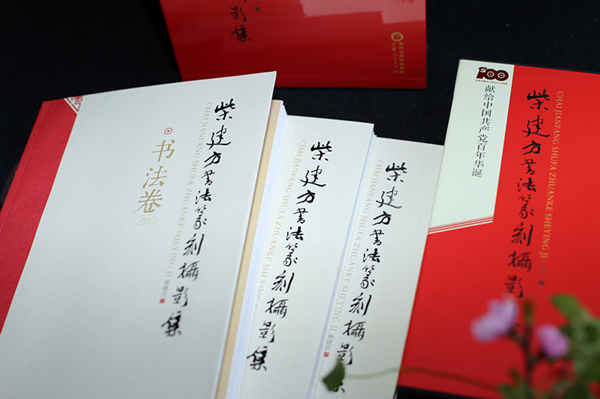 影集
柴建方书法篆刻攝影集
CHAI JIANFANG SHUFA ZHUANKE SHEYING JI
书法卷
柴建方书法篆刻攝影集
CHAI JIANFANG SHUFA ZHUANKE SHEYING JI
柴建方书法篆刻攝影集
CHAI JIANFANG SHUFA ZHUANKE SHEYING JI
100
献给中国共产党百年华诞
柴建方书法篆刻攝影集
CHAI JIANFANG SHUFA ZHUANKE SHEYING JI